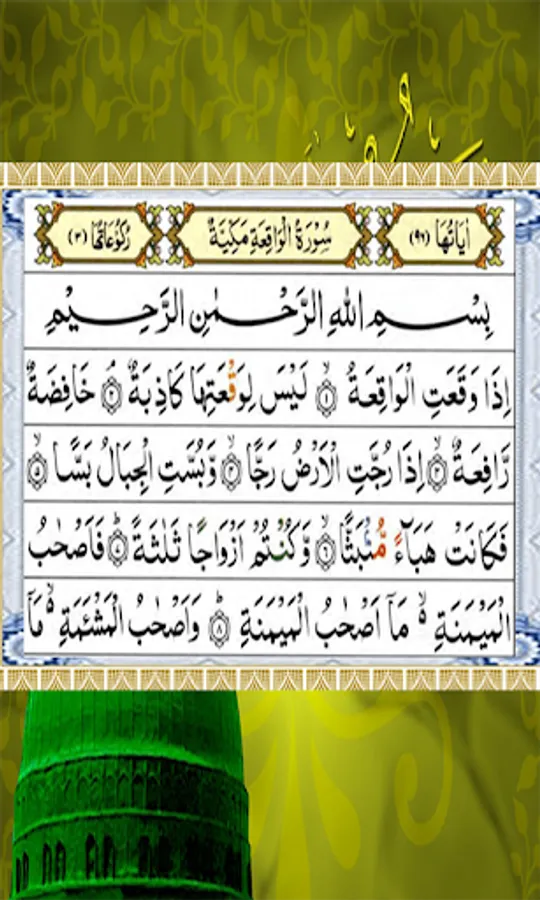 اٰيَاتُهَا (٩٦) سُوْرَةُ الْوَاقِعَةِ مَكِّيَّةٌ رُكُوْعَاتُهَا (٣)
بِسْمِ اللهِ الرَّحْمٰنِ الرَّحِيْمِ
اِذَا وَقَعَتِ الْوَاقِعَةُ ۙ﴿١﴾ لَيْسَ لِوَقْعَتِهَا كَاذِبَةٌ ۘ﴿٢﴾ خَافِضَةٌ
رَّافِعَةٌ ۙ﴿٣﴾ اِذَا رُجَّتِ الْاَرْضُ رَجًّا ۙ﴿٤﴾ وَّبُسَّتِ الْجِبَالُ بَسًّا ۙ﴿٥﴾
فَكَانَتْ هَبَآءً مُّنْۢبَثًّا ۙ﴿٦﴾ وَّكُنْتُمْ اَزْوَاجًا ثَلٰثَةً ؕ﴿٧﴾ فَاَصْحٰبُ
الْمَيْمَنَةِ ۙ۬ مَاۤ اَصْحٰبُ الْمَيْمَنَةِ ؕ﴿٨﴾ وَاَصْحٰبُ الْمَشْـَٔمَةِ ۙ۬ مَاۤ